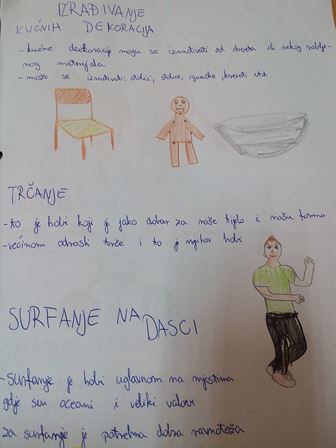 IZRAĐIVANJE
KUĆNIH DEKORACIJA
- kućne dekoracije mogu se izrađivati od drveta ili nekog
nog materijala
- može se izrađivati: zdjelice, igračke, kreveti itd.
TRČANJE
- to je hobi koji je jako dobar za naše tijelo i našu formu
- većinom odrasli trče i to je njihov hobi
SURFANJE NA
DASCI
- surfanje je hobi uglavnom na mjestima
gdje su oceani i veliki valovi
za surfanje je potrebna dobra ravnoteža